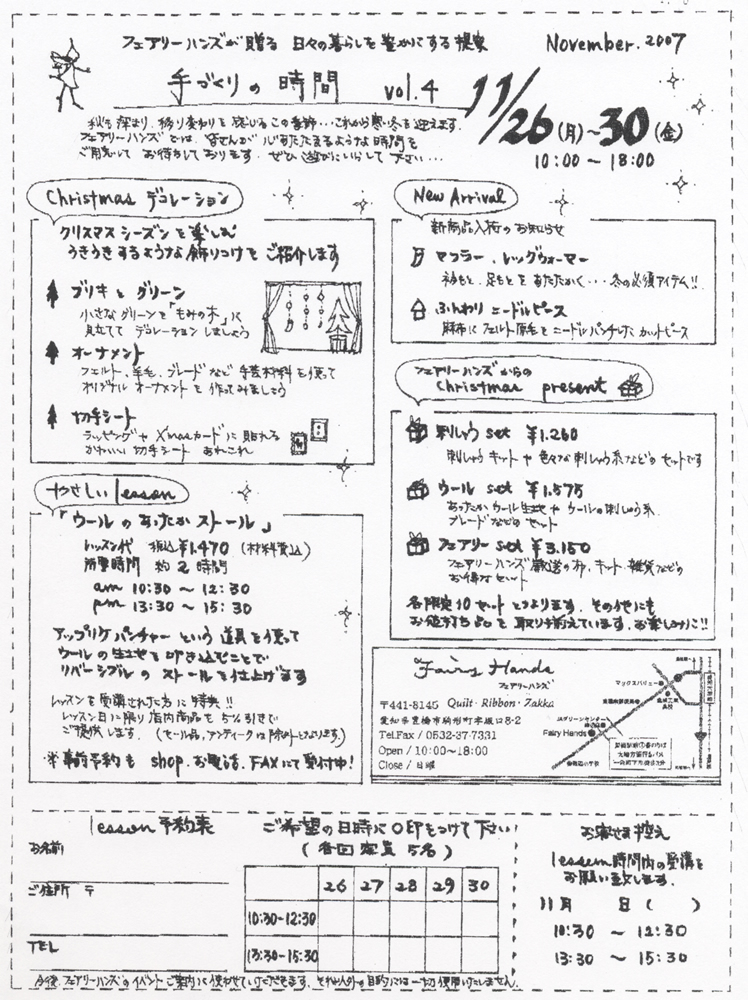 フェアリーハンズが贈る 日々の暮らしを豊かにする提案
November.2007
手づくりの時間 vol.4
11/26(月)~30(金)
10:00~18:00
秋も深まり、移り変わりを感じるこの季節…これから寒い冬を迎えます.
フェアリーハンズでは、皆さんが心あたたまるような時間を
ご用意して お待ちしております. ぜひ遊びにいらして下さい…
Christmas デコレーション
クリスマスシーズンを楽しむ
うきうきするような飾りつけをご紹介します
ブリキとグリーン
小さなグリーンを「もみの木」に
見立てて デコレーションしましょう
オーナメント
フェルト、羊毛、ブレードなど 手芸材料を使って
オリジナル オーナメントを作ってみましょう
切手シート
ラッピングや X'masカードに貼れる
かわいい 切手シート あれこれ
New Arrival
新商品入荷のお知らせ
マフラー、レッグウォーマー
衿もと、足もとをあたたかく…冬の必須アイテム!!
ふんわりニードルピース
麻布にフェルト原毛をニードルパンチした カットピース
フェアリーハンズからの
Christmas present
刺しゅう set ¥1.260
刺しゅう キットや 色々な刺しゅう糸などのセットです
ウール set ¥1.575
あったかウール生地や ウールの刺しゅう糸.
ブレードなどのセット
フェアリー set ¥3.150
フェアリーハンズ厳選の布、キット、雑貨などの
お得なセット
各限定10セットとなります. その他にも
お値打ち品を取り揃えています.お楽しみに!!
やさしい lesson
「ウールのあったかストール」
レッスン代 税込¥1.470 (材料費込)
所要時間 約2時間
am 10:30 ~ 12:30
pm 13:30 ~ 15:30
アップリケパンチャーという道具を使って
ウールの生地を叩き込むことで
リバーシブルの ストールを仕上げます
レッスンを受講された方に特典!!
レッスン日に限り店内商品を5%引きで
ご提供します. (セール品、アンティークは除外となります)
※事前予約も shop.お電話.FAXにて受付中!
Fairy Hands
フェアリーハンズ
〒441-8145 Quilt・Ribbon・Zakka
愛知県豊橋市駒形町字坂口8-2
Tel.Fax / 0532-37-7331
Open / 10:00~18:00
Close / 日曜
マックスバリュー
JAグリーンセンター
Fairy Hands
lesson予約表
ご希望の日時に○印をつけて下さい
(各回定員5名)
お名前
ご住所 〒
TEL
26 27 28 29 30
10:30-12:30
13:30-15:30
お客さま控え
lesson時間内の受講を
お願い致します.
11月 日( )
10:30 ~ 12:30
13:30 ~ 15:30
今後、フェアリーハンズのイベントご案内に使わせていただきます. それ以外の目的には一切使用いたしません.